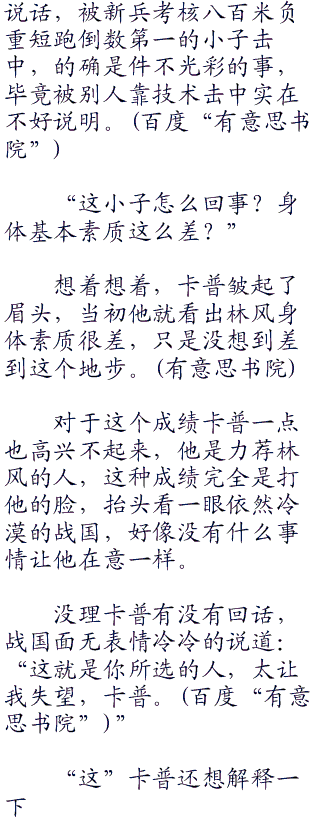 说话，被新兵考核八百米负
重短跑倒数第一的小子击
中，的确是件不光彩的事，
毕竟被别人靠技术击中实在
不好说明。(百度“有意思书
院”)
“这小子怎么回事？身
体基本素质这么差？”
想着想着，卡普皱起了
眉头，当初他就看出林风身
体素质很差，只是没想到差
到这个地步。(有意思书院)
对于这个成绩卡普一点
也高兴不起来，他是力荐林
风的人，这种成绩完全是打
他的脸，抬头看一眼依然冷
漠的战国，好像没有什么事
情让他在意一样。
没理卡普有没有回话，
战国面无表情冷冷的说道：
“这就是你所选的人，太让
我失望，卡普。(百度“有意
思书院”)”
“这”卡普还想解释一
下